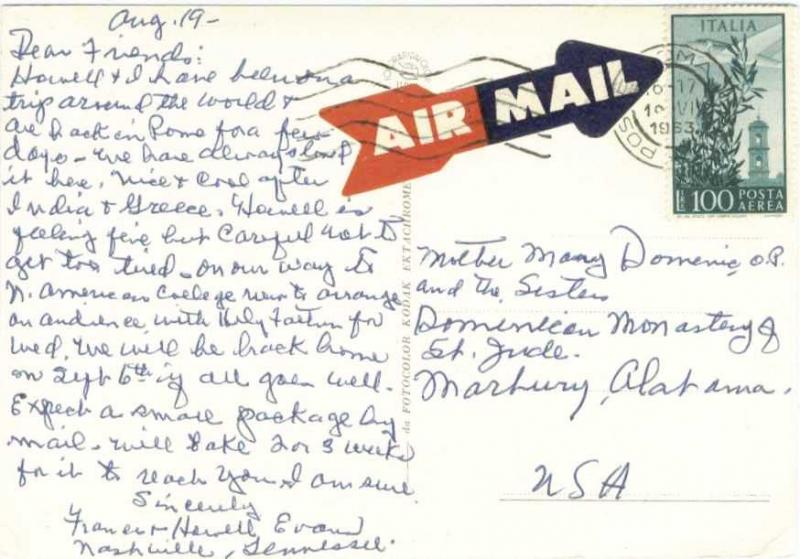 Aug. 19-
Dear Friends:
Howell & I have been on a
trip around the world &
are back in Rome for a few
days - We have always loved
it here. Nice & cool after
India & Greece. Howell is
feeling fine but careful not to
get too tired - on our way to
N. American College now to arrange
an audience with Holy Father for
Wed. We will be back home
on Sept 6th if all goes well.
Expect a small package by
mail - will take 2 or 3 weeks
for it to reach you I am sure
Sincerely
Frances & Howell Evans
Nashville, Tennessee.
AIR MAIL
ITALIA
LIRE 100 POSTA
AEREA
16-17
1963
POSTE
da FOTOCOLOR KODAK EKTACHROME
Mother Mary Dominic, O.P.
and the Sisters
Dominican Monastery of
St. Jude.
Marbury, Alabama.
USA